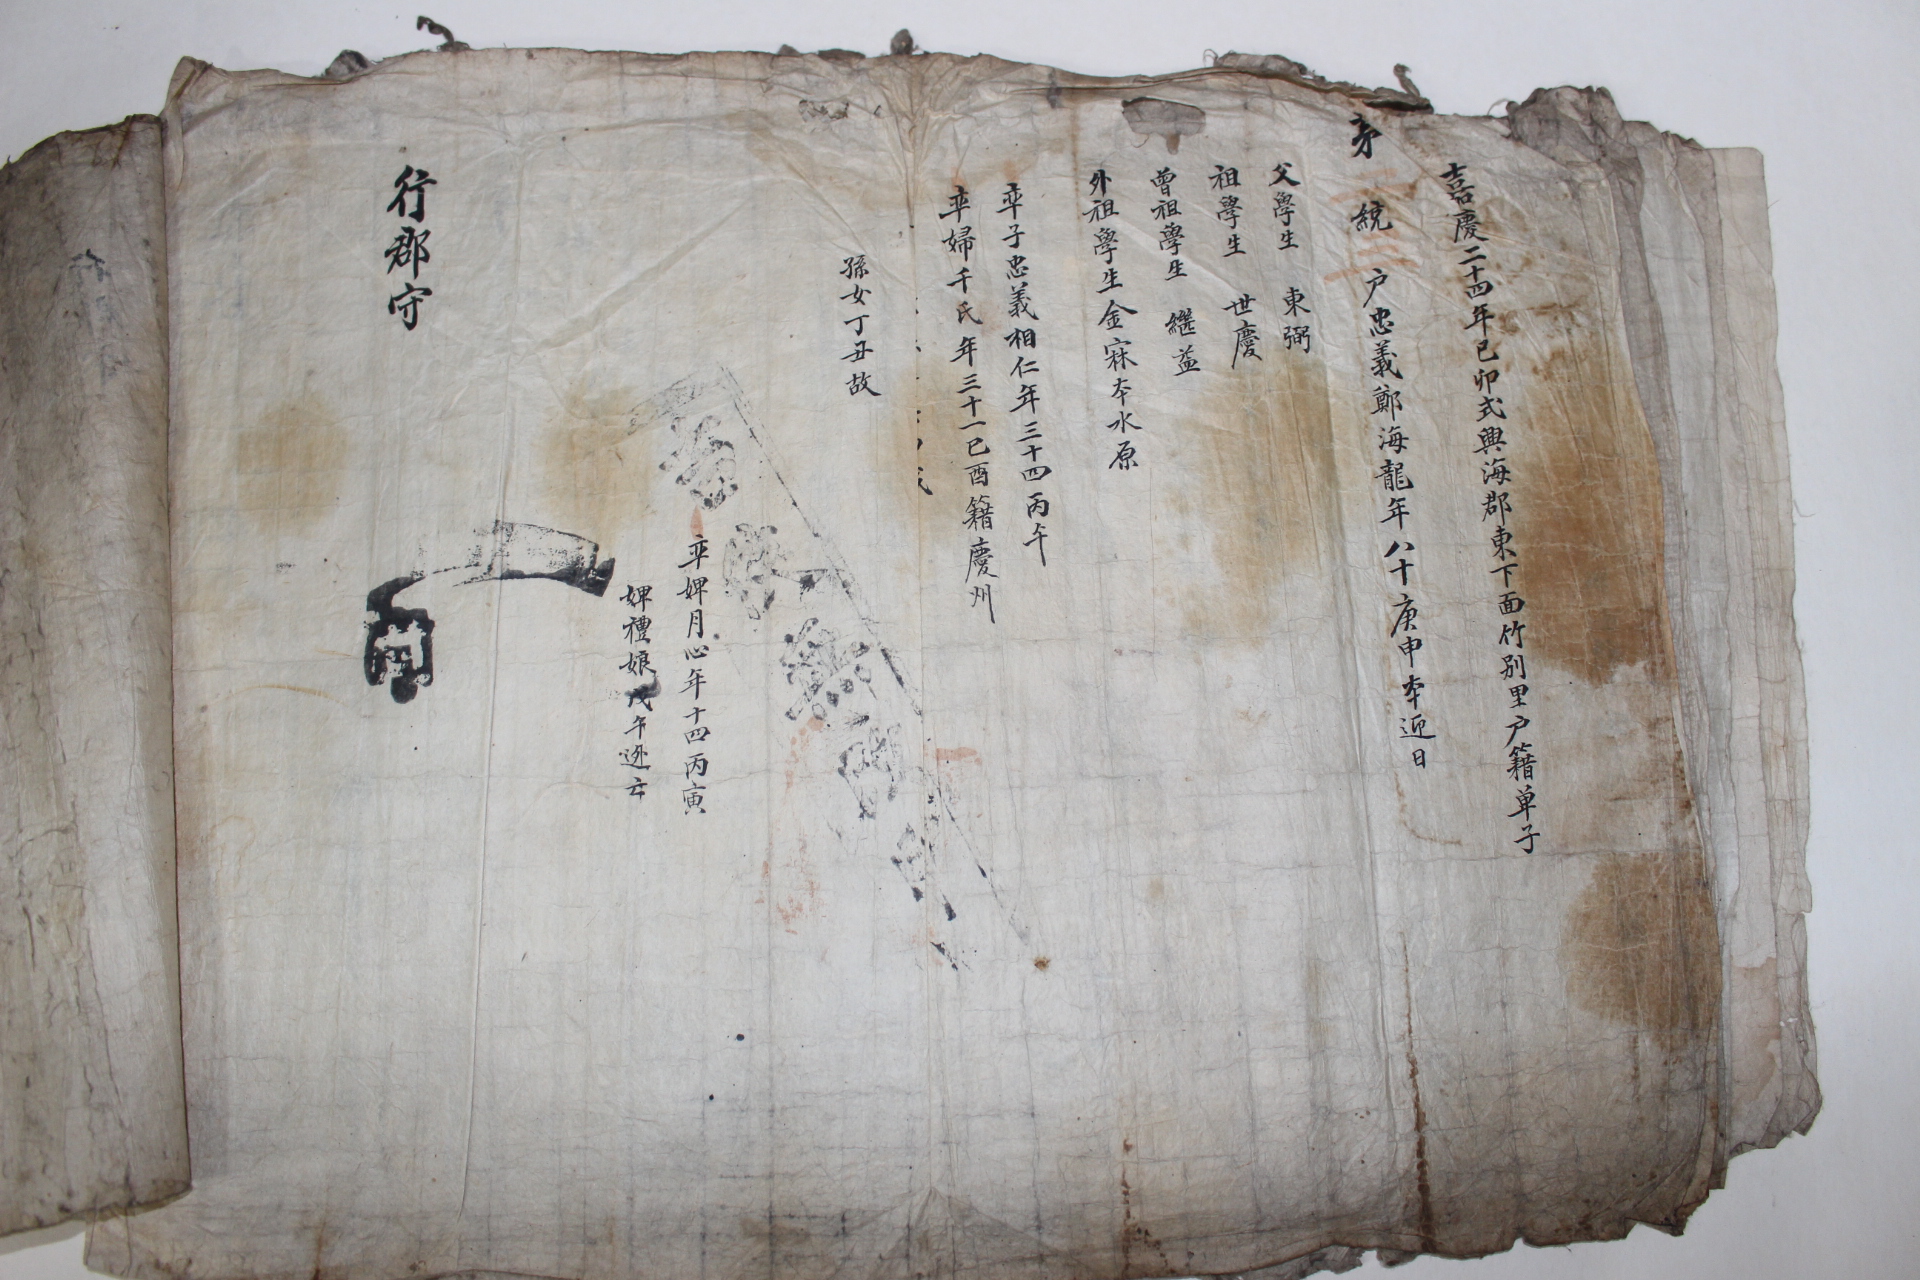 嘉慶二十四年己卯式興海郡東下面竹別里户籍单子
苐 統 户忠義鄭海龍年八十庚申本迎日
父學生 東弼
祖學生 世慶
曾祖學生 繼益
外祖學生金寀本水原
率子忠義相仁年三十四丙午
率婦千氏年三十一己酉籍慶州
孫女丁丑故
率婢月心年十四丙寅
婢禮娘戊午逃亡
行郡守